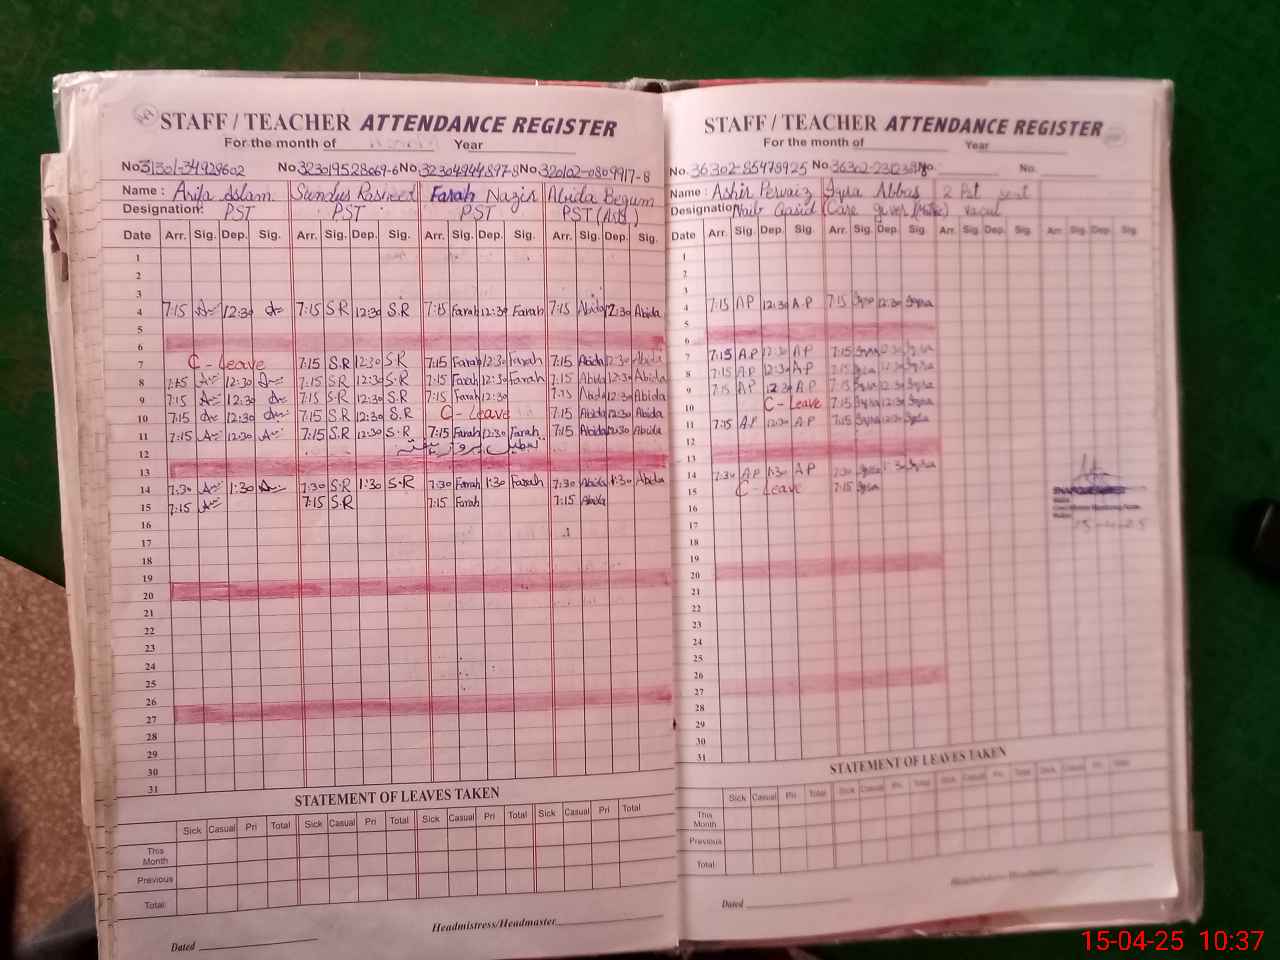 STAFF / TEACHER ATTENDANCE REGISTER
For the month of Year
No. No. No. No.
Name : Asifa Aslam Sundus Rasheed Farah Nazir Abida Begum
Designation: PST PST PST PST (Arts)
Date Arr. Sig. Dep. Sig. Arr. Sig. Dep. Sig. Arr. Sig. Dep. Sig. Arr. Sig. Dep. Sig.
1
2
3
4 7:15 12:30 7:15 S.R 12:30 S.R 7:15 Farah 12:30 Farah 7:15 Abida 12:30 Abida
5
6
7 C - Leave 7:15 S.R 12:30 S.R 7:15 Farah 12:30 Farah 7:15 Abida 12:30 Abida
8 7:15 12:30 7:15 S.R 12:30 S.R 7:15 Farah 12:30 Farah 7:15 Abida 12:30 Abida
9 7:15 12:30 7:15 S.R 12:30 S.R 7:15 Farah 12:30 7:15 Abida 12:30 Abida
10 7:15 12:30 7:15 S.R 12:30 S.R C - Leave 7:15 Abida 12:30 Abida
11 7:15 12:30 7:15 S.R 12:30 S.R 7:15 Farah 12:30 Farah 7:15 Abida 12:30 Abida
12 تعطیل بروز ہفتہ
13
14 7:30 1:30 7:30 S.R 1:30 S.R 7:30 Farah 1:30 Farah 7:30 Abida 1:30 Abida
15 7:15 7:15 S.R 7:15 Farah 7:15 Abida
16
17
18
19
20
21
22
23
24
25
26
27
28
29
30
31
STATEMENT OF LEAVES TAKEN
Sick Casual Pri Total Sick Casual Pri Total Sick Casual Pri Total Sick Casual Pri Total
This Month
Previous
Total
Headmistress/Headmaster
Dated
STAFF / TEACHER ATTENDANCE REGISTER
For the month of Year
No. 36302-85478925 No. No. No.
Name : Ashir Pervaiz Iqra Abbas 2 Pst seat
Designation: Naib Qasid (Care giver) vacant
Date Arr. Sig. Dep. Sig. Arr. Sig. Dep. Sig Arr. Sig. Dep. Sig. Arr. Sig. Dep. Sig.
1
2
3
4 7:15 A.P 12:30 A.P 7:15 Iqra 12:30 Iqra
5
6
7 7:15 A.P 12:30 A.P 7:15 Iqra 12:30 Iqra
8 7:15 A.P 12:30 A.P 7:15 Iqra 12:30 Iqra
9 7:15 A.P 12:30 A.P 7:15 Iqra 12:30 Iqra
10 C - Leave 7:15 Iqra 12:30 Iqra
11 7:15 A.P 12:30 A.P 7:15 Iqra 12:30 Iqra
12
13
14 7:30 A.P 1:30 A.P 7:30 Iqra 1:30 Iqra
15 C - Leave 7:15 Iqra
16
17 15-4-25
18
19
20
21
22
23
24
25
26
27
28
29
30
31
STATEMENT OF LEAVES TAKEN
Sick Casual Pri Total Sick Casual Pri Total Sick Casual Pri Total Sick Casual Pri Total
This Month
Previous
Total
Headmistress/Headmaster
Dated
15-04-25 10:37